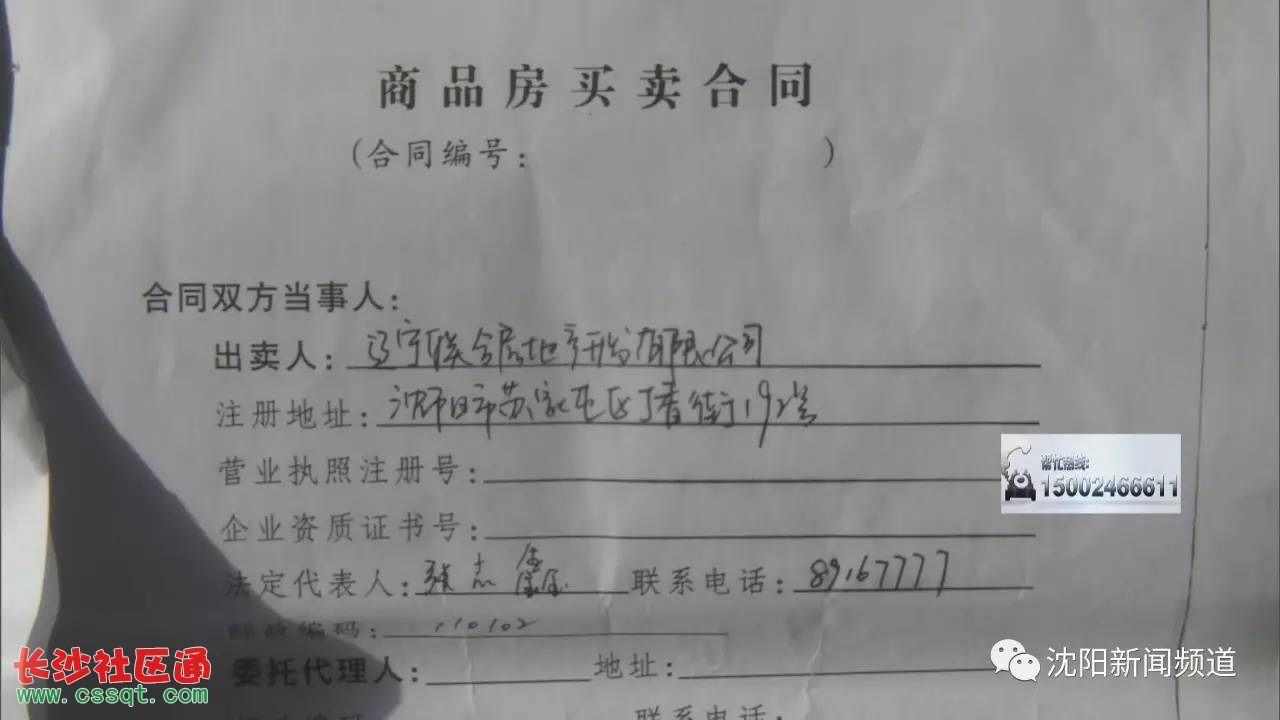 商品房买卖合同
(合同编号: )
合同双方当事人:
出卖人: 辽宁联合房地产开发有限公司
注册地址: 沈阳市苏家屯区丁香街192号
营业执照注册号:
企业资质证书号:
法定代表人: 张志鑫 联系电话: 89167777
邮政编码: 110102
委托代理人: 地址:
联系电话:
帮忙热线:
15002466611
长沙社区通
www.cssqt.com
沈阳新闻频道